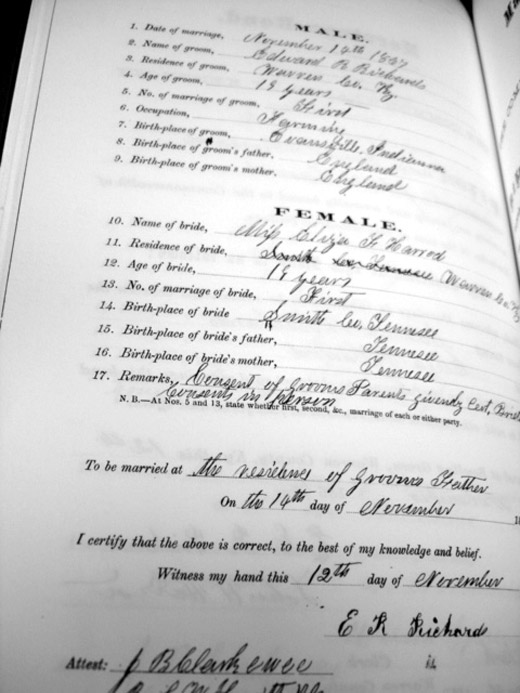 MALE.
1. Date of marriage, November 14th 1887
2. Name of groom, Edward R Richards
3. Residence of groom, Warren Co, Ky.
4. Age of groom, 19 years
5. No. of marriage of groom, First
6. Occupation, Farming
7. Birth-place of groom, Evansville, Indianna
8. Birth-place of groom's father, England
9. Birth-place of groom's mother, England
FEMALE.
10. Name of bride, Miss Eliza F Harrod
11. Residence of bride, Smith Co, Tennesee Warren Co. Ky
12. Age of bride, 19 years
13. No. of marriage of bride, First
14. Birth-place of bride Smith Co, Tennesee
15. Birth-place of bride's father, Tennesee
16. Birth-place of bride's mother, Tennesee
17. Remarks, Consent of grooms Parents given by Cert,
Consents in person
N. B.—At Nos. 5 and 13, state whether first, second, &c., marriage of each or either party.
To be married at the residence of grooms Father
On the 14th day of November
I certify that the above is correct, to the best of my knowledge and belief.
Witness my hand this 12th day of November
E R Richards
Attest: